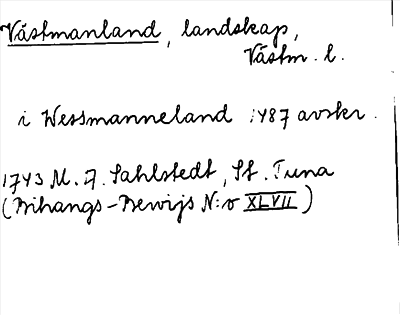 Västmanland, landskap,
Västm. l.
i Wessmanneland 1487 avskr.
1743 M. F. Sahlstedt, St. Tuna
(Bihangs-Bewijs N:o XLVII)